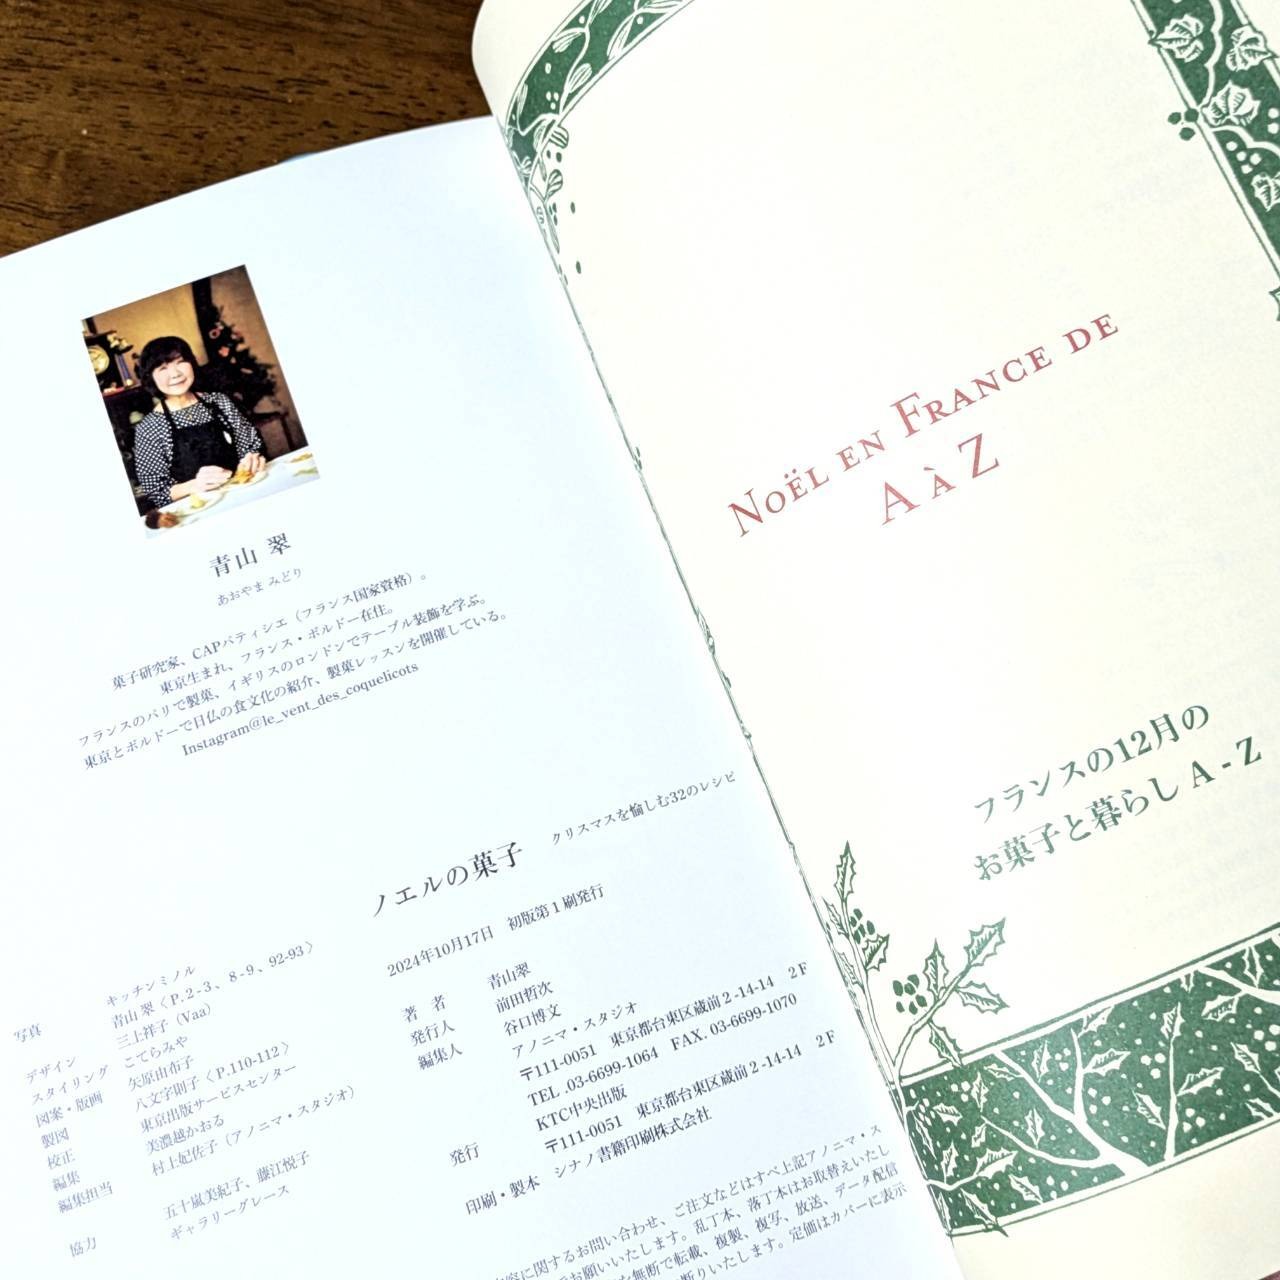 青山 翠
あおやま みどり
菓子研究家、CAPパティシエ（フランス国家資格）。
東京生まれ、フランス・ボルドー在住。
フランスのパリで製菓、イギリスのロンドンでテーブル装飾を学ぶ。
東京とボルドーで日仏の食文化の紹介、製菓レッスンを開催している。
Instagram@le_vent_des_coquelicots
ノエルの菓子 クリスマスを愉しむ32のレシピ
2024年10月17日 初版第1刷発行
著者 青山翠
発行人 前田哲次
編集人 谷口博文
アノニマ・スタジオ
〒111-0051 東京都台東区蔵前2-14-14 2F
TEL.03-6699-1064 FAX.03-6699-1070
発行 KTC中央出版
〒111-0051 東京都台東区蔵前2-14-14 2F
印刷・製本 シナノ書籍印刷株式会社
内容に関するお問い合わせ、ご注文などはすべ上記アノニマ・ス
お願いいたします。乱丁本、落丁本はお取替えいたし
を無断で転載、複製、複写、放送、データ配信
断りいたします。定価はカバーに表示
写真 キッチンミノル
青山 翠〈P.2-3、8-9、92-93〉
デザイン 三上祥子（Vaa）
スタイリング こてらみや
図案・版画 矢原由布子
製図 八文字則子〈P.110-112〉
校正 東京出版サービスセンター
編集 美濃越かおる
編集担当 村上妃佐子（アノニマ・スタジオ）
協力 五十嵐美紀子、藤江悦子
ギャラリーグレース
NOËL EN FRANCE DE
A À Z
フランスの12月の
お菓子と暮らし A - Z